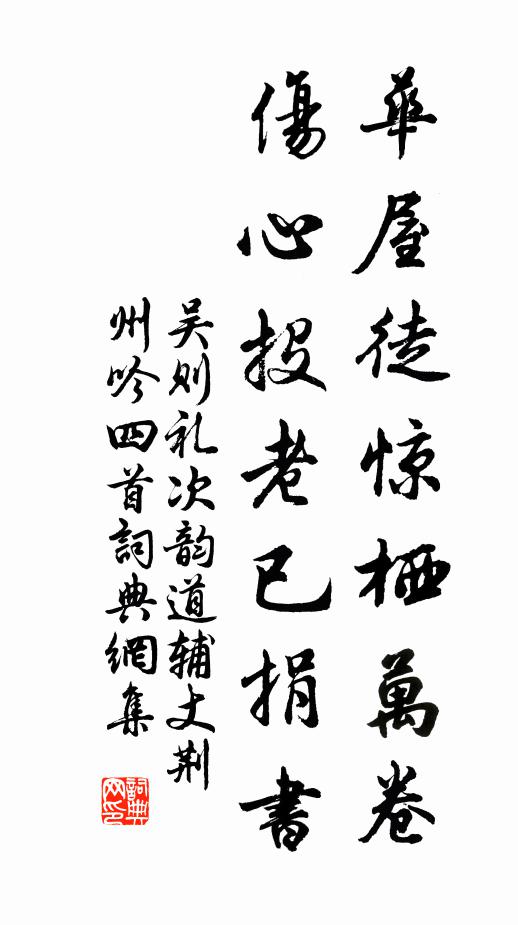 華屋徒惊栖萬卷
傷心投老已捐書
吴则礼次韵道辅丈荆
州吟四首詞典網集
詞典网印